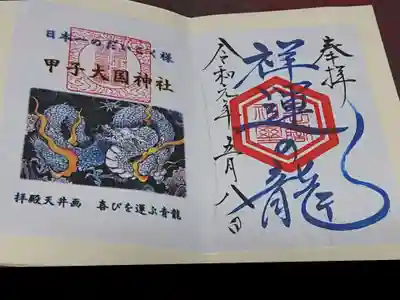 奉拝
祥運の龍
令和元年五月八日
日本一のだいこく様
甲子大国神社
拝殿天井画 喜びを運ぶ青龍